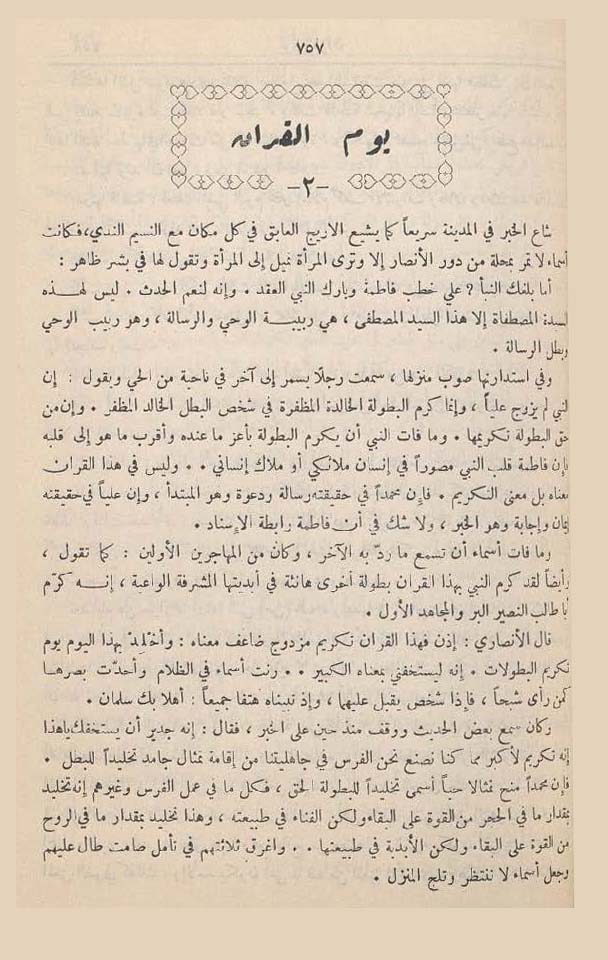 ٧٥٧
يوم القران
-٢-
شاع الخبر في المدينة سريعاً كما يشيع الاريج العابق في كل مكان مع النسيم الندي، فكانت
أسماء لا تمر بمحلة من دور الأنصار إلا وترى المرأة تميل إلى المرأة وتقول لها في بشر ظاهر :
أما بلغك النبأ ؟ علي خطب فاطمة وبارك النبي العقد . وإنه لنعم الحدث . ليس لهذه
السيدة المصطفاة إلا هذا السيد المصطفى ، هي ربيبة الوحي والرسالة ، وهو ربيب الوحي
وبطل الرسالة .
وفي استدارتها صوب منزلها ، سمعت رجلًا يسمر إلى آخر في ناحية من الحي ويقول : إن
النبي لم يزوج علياً ، وإنما كرم البطولة الخالدة المظفرة في شخص البطل الخالد المظفر . وإن من
حق البطولة تكريمها . وما فات النبي أن يكرم البطولة بأعز ما عنده وأقرب ما هو إلى قلبه
فإن فاطمة قلب النبي مصوراً في إنسان ملائكي أو ملاك إنساني . . وليس في هذا القران
معناه بل معنى التكريم . فإن محمداً في حقيقته رسالة ودعوة وهو المبتدأ ، وإن علياً في حقيقته
إيمان وإجابة وهو الخبر ، ولا شك في أن فاطمة رابطة الإسناد .
وما فات أسماء أن تسمع ما ردّ به الآخر ، وكان من المهاجرين الأولين : كما تقول ،
وأيضاً لقد كرم النبي بهذا القران بطولة أخرى هانئة في أبديتها المشرفة الواعية ، إنه كرّم
أبا طالب النصير البر والمجاهد الأول .
قال الأنصاري : إذن فهذا القران تكريم مزدوج ضاعف معناه : وأخْلِدْ بهذا اليوم يوم
تكريم البطولات . إنه ليستخفني بمعناه الكبير . . رنت أسماء في الظلام وأحدّت بصرها
كمن رأى شبحاً ، فإذا شخص يقبل عليها ، وإذ تبيناه هتفا جميعاً : أهلا بك سلمان .
وكان سمع بعض الحديث ووقف منذ حين على الخبر ، فقال : إنه جدير أن يستخفك ياهذا
إنه تكريم لأكبر مما كنا نصنع نحن الفرس في جاهليتنا من إقامة تمثال جامد تخليداً للبطل .
فإن محمداً منح تمثالا حياً أسمى تخليداً للبطولة الحق ، فكل ما في عمل الفرس وغيرهم إنه تخليد
بمقدار ما في الحجر من القوة على البقاء ولكن الفناء في طبيعته ، وهذا تخليد بمقدار ما في الروح
من القوة على البقاء ولكن الأبدية في طبيعتها . . واغرق ثلاثتهم في تأمل صامت طال عليهم
وجعل أسماء لا تنتظر وتلج المنزل .